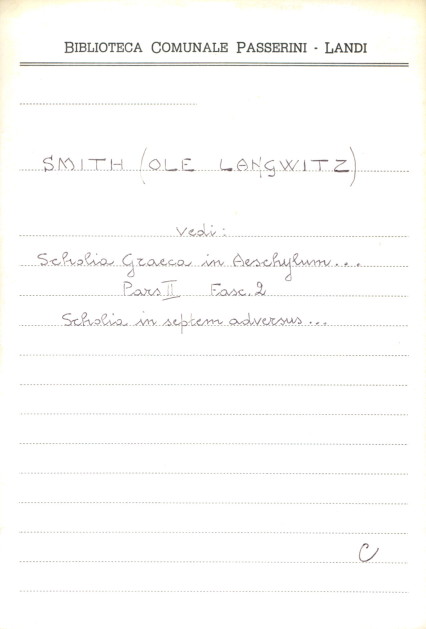 BIBLIOTECA COMUNALE PASSERINI - LANDI
SMITH (OLE LANGWITZ)
Vedi:
Scholia Graeca in Aeschylum...
Pars II Fasc. 2
Scholia in septem adversus...
C